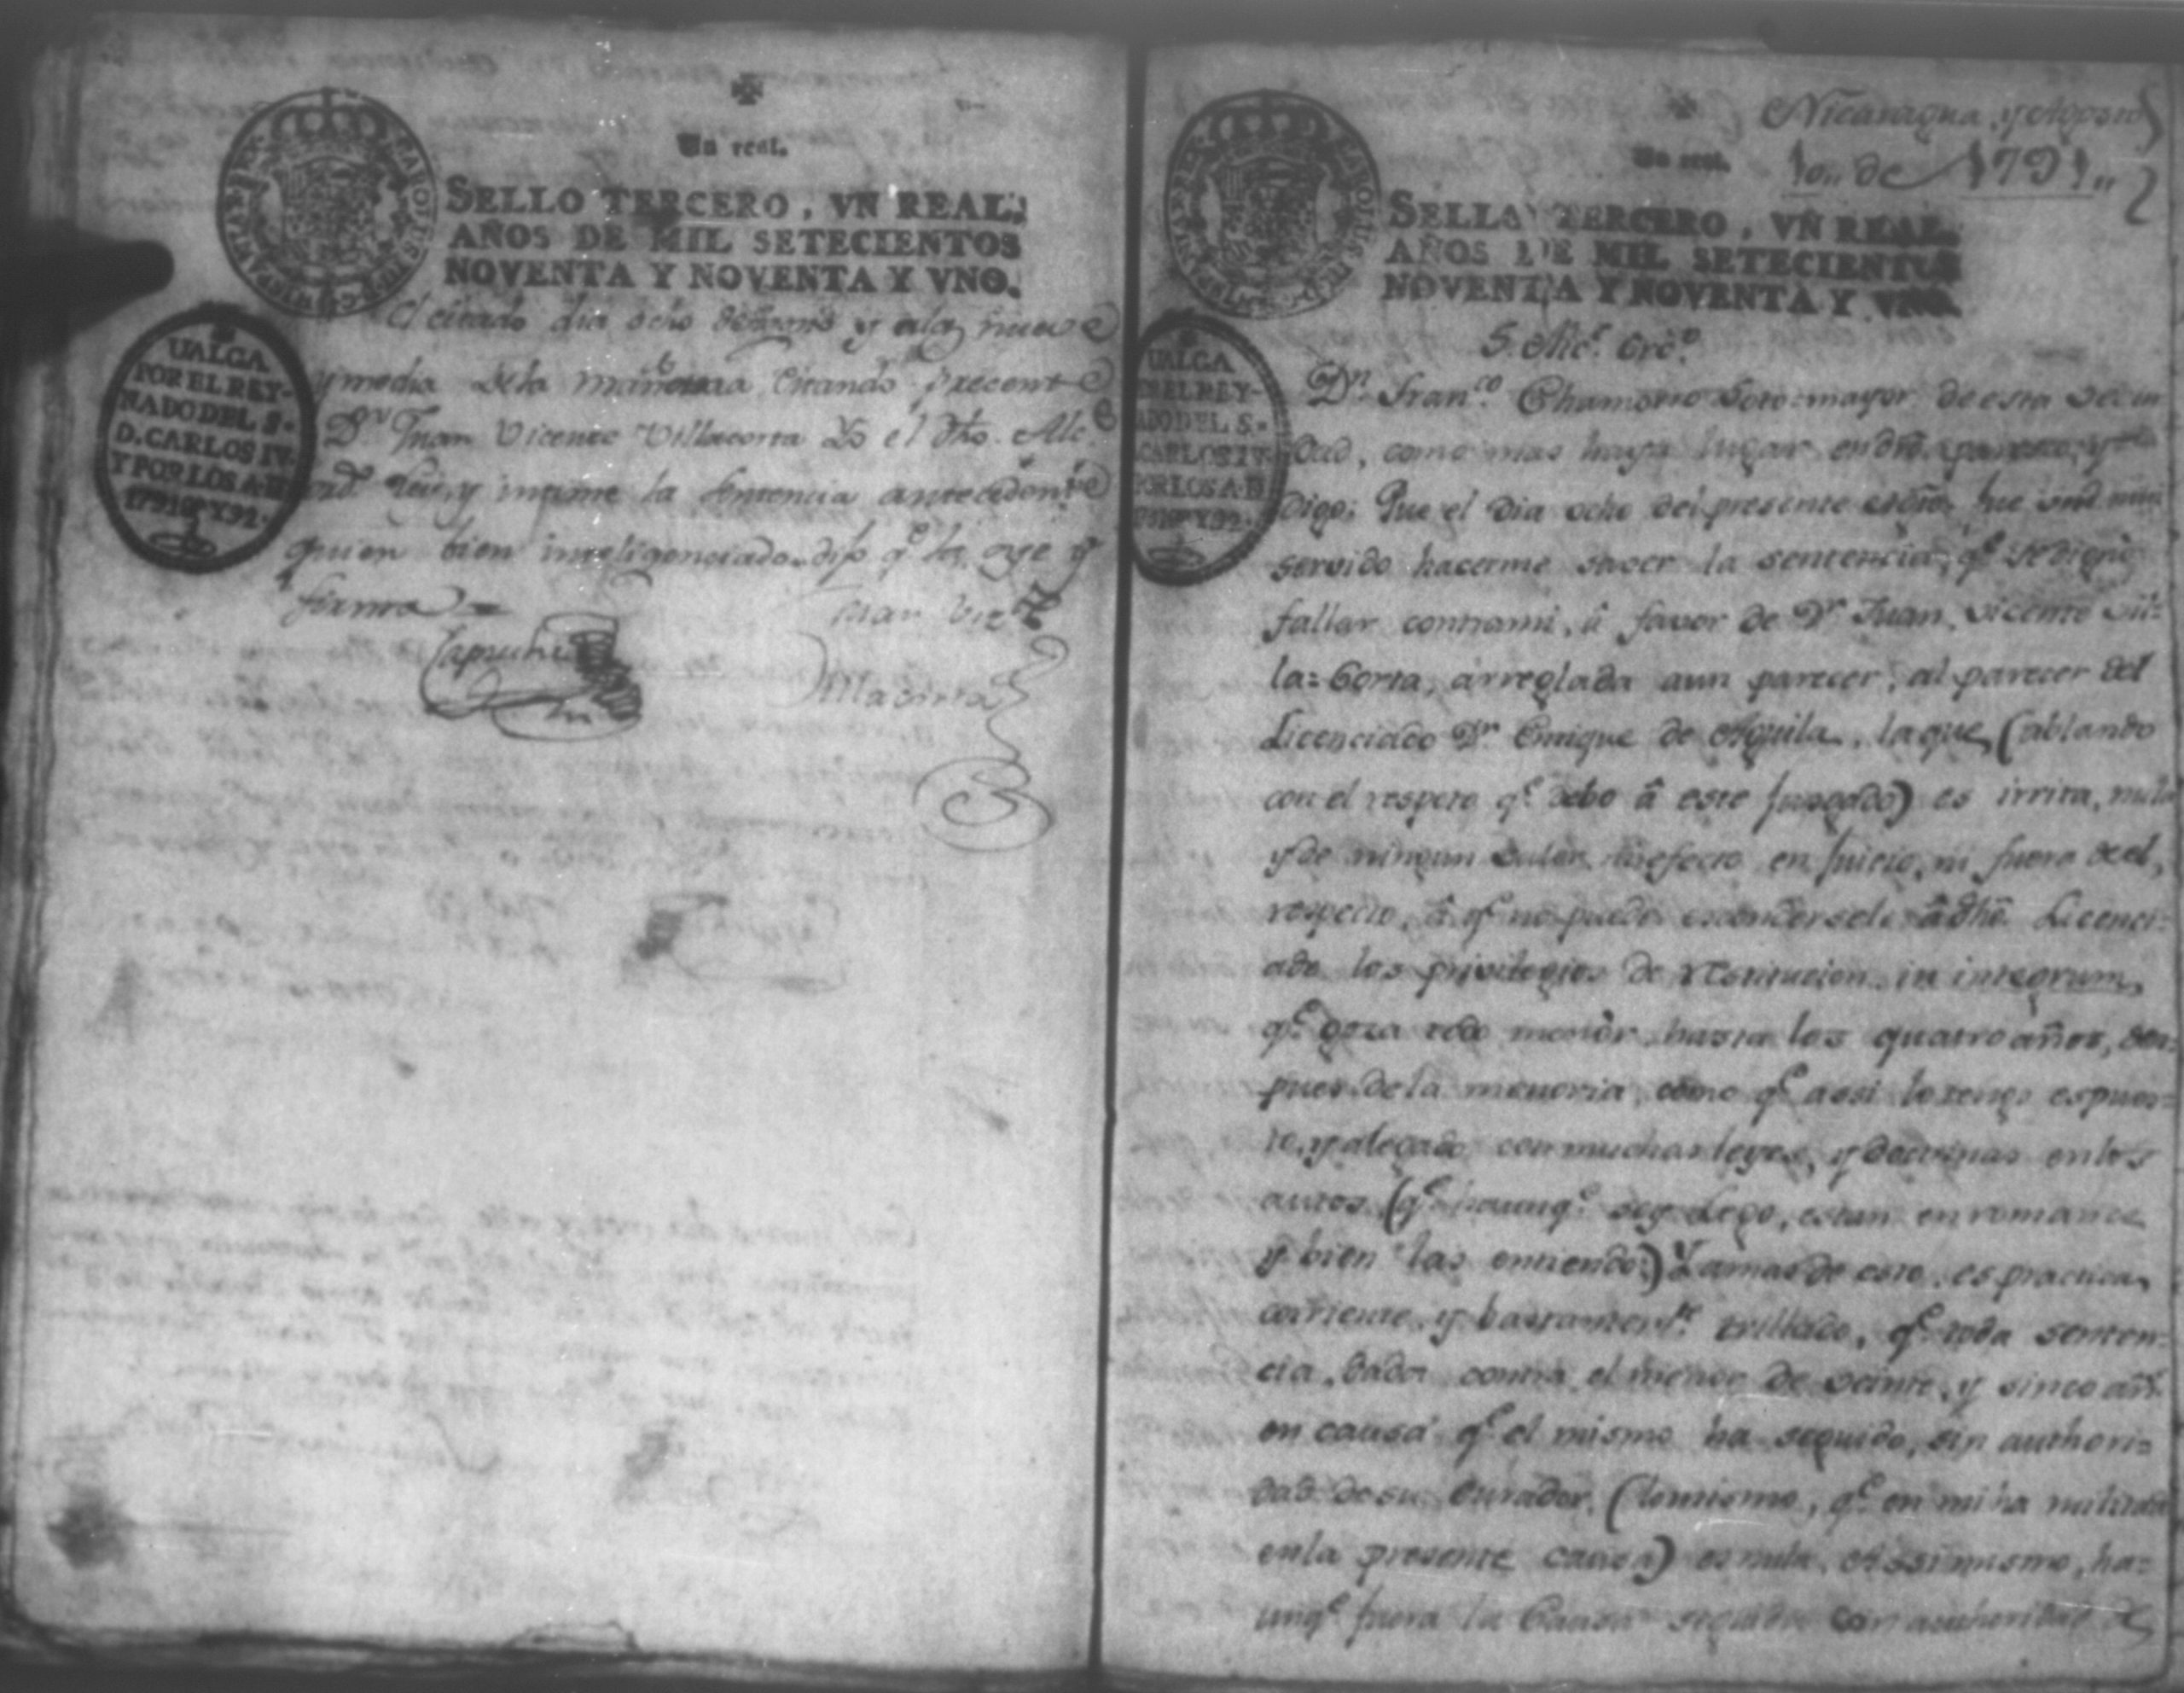 Un real.
SELLO TERCERO, VN REAL.
AÑOS DE MIL SETECIENTOS
NOVENTA Y NOVENTA Y VNO.
VALGA
POR EL REY-
NADO DEL S.
D. CARLOS IV.
Y POR LOS A.D
1791 Y 92.
El citado dia ocho y alas nueve
y media dela mañana estando precente
Dn Juan Vicente Villacorta Yo el dho. Alc.e
ord.o leí, y intimé la sentencia antecedente
quien bien inteligenciado dijo q.e la oye y
firma
Juan Viz.te
Villacorta
Nicaragua, y Agosto
10,, de 1791,,
Un real.
SELLO TERCERO, VN REAL.
AÑOS DE MIL SETECIENTOS
NOVENTA Y NOVENTA Y VNO.
VALGA
POR EL REY-
NADO DEL S.
D. CARLOS IV
Y POR LOS A.D
S. Alc.e Ord.o
Dn Fran.co Chamorro Sotomayor de esta vecin
dad, como mas haya lugar en dro. paresco, y
Digo: Que el dia ocho del presente fue
servido hacerme saver la sentencia, q.e se dignò
fallar contrami, â favor de Dn Juan Vicente Vi-
lla=Corta, arreglada aun parecer, al parecer del
Licenciado Dn Enrique de Aguila, la que, (ablando
con el respeto q.e debo â este Jusgado) es irrita, nula
y de ningun valor, ni efecto en Juicio, ni fuera deel,
respecto, â q.e no puede escondersele âdho. Licenci-
ado los privilegios de restitucion in integrum,
q.e gosa todo menòr hasta los quatro años, des-
pues dela menoria, como q.e assi lo tengo espues-
to, y alegado con muchas leyes, y doctrinas en los
autos (q.e haunq.e soy Lego, estan en romance
y bien las entiendo:) Y amas de esto, es practica
corriente, y bastantem.te trillado, q.e toda senten-
cia, dada contra el menor de veinte, y sinco añ.s
en causa q.e el mismo ha seguido, sin authori=
dad desu Curador, (lo mismo, q.e en mi ha militado
enla presente causa) es nula. Assimismo, ha=
unq.e fuera la Causa seguida con authoridad de